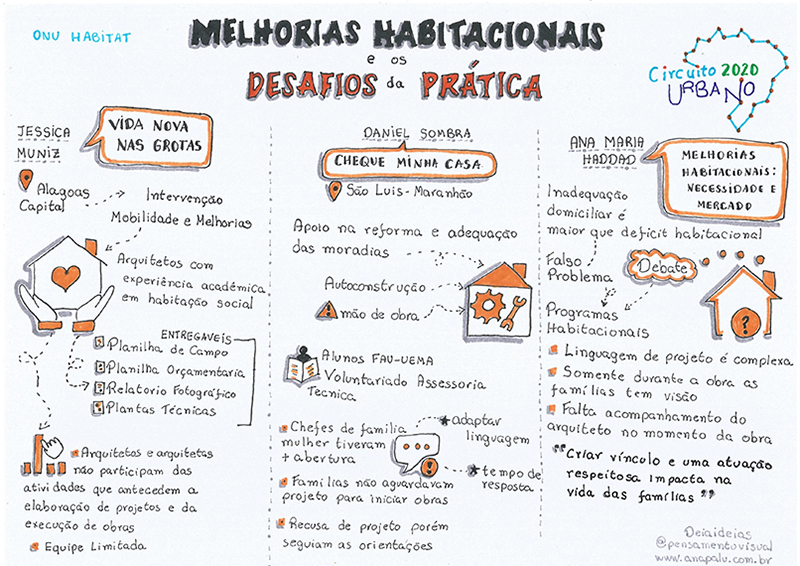 ONU HABITAT
MELHORIAS HABITACIONAIS
e os
DESAFIOS da PRÁTICA
Circuito 2020
URBANO
JESSICA
MUNIZ
VIDA NOVA
NAS GROTAS
Alagoas
Capital
Intervenção
Mobilidade e Melhorias
Arquitetos com
experiência acadêmica
em habitação social
ENTREGAVEIS
1 Planilha de Campo
2 Planilha Orçamentaria
3 Relatorio Fotográfico
4 Plantas Técnicas
Arquitetos e arquitetas
não participam das
atividades que antecedem a
elaboração de projetos e da
execução de obras
Equipe Limitada
DANIEL SOMBRA
CHEQUE MINHA CASA
São Luis-Maranhão
Apoio na reforma e adequação
das moradias
Autoconstrução
mão de obra
Alunos FAU-UEMA
Voluntariado Assessoria
Tecnica
Chefes de familia
mulher tiveram
+ abertura
adaptar
linguagem
tempo de
resposta
Familias não aguardavam
projeto para iniciar obras
Recusa de projeto porém
seguiam as orientações
ANA MARIA
HADDAD
MELHORIAS
HABITACIONAIS:
NECESSIDADE E
MERCADO
Inadequação
domiciliar é
maior que deficit habitacional
Falso
Problema
Debate
Programas
Habitacionais
?
Linguagem de projeto é complexa
Somente durante a obra as
famílias tem visão
Falta acompanhamento do
arquiteto no momento da obra
"Criar vínculo e uma atuação
respeitosa impacta na
vida das famílias"
Deiaideias
@pensamentovisual
www.anapalu.com.br